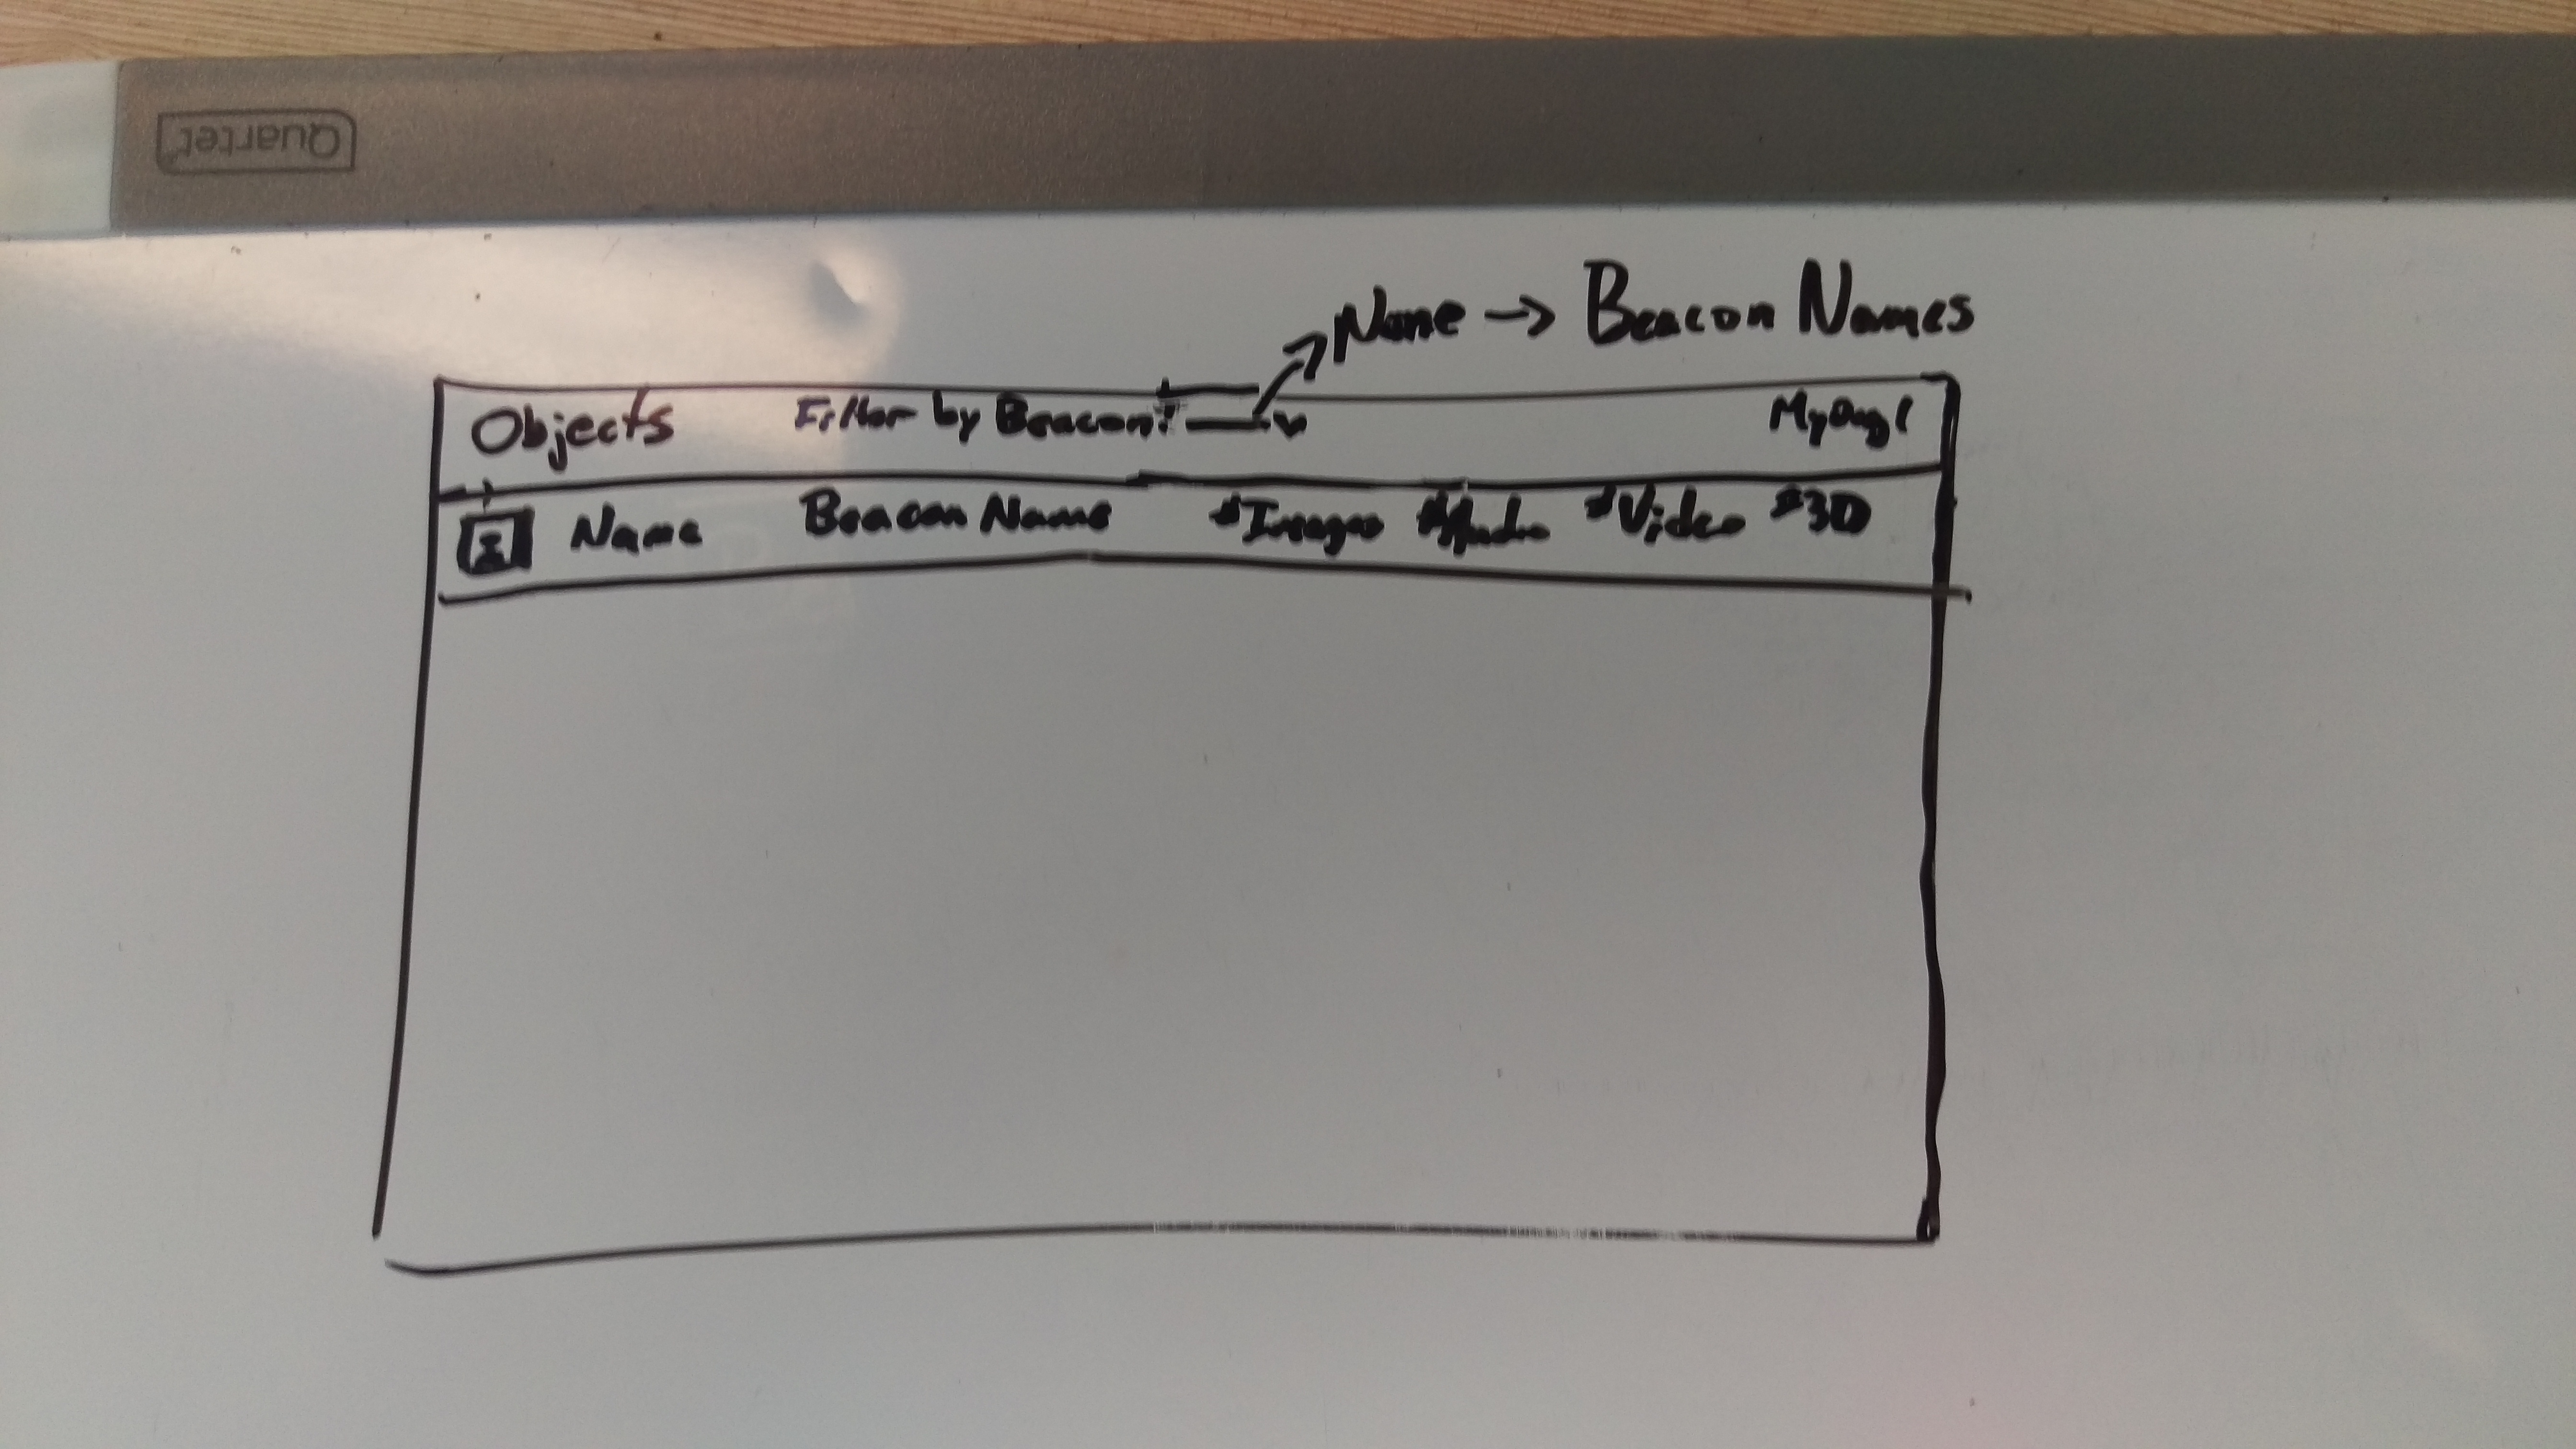 Quartet
None → Beacon Names
Objects Filter by Beacon:
Name Beacon Name #Images #Audio #Video #3D